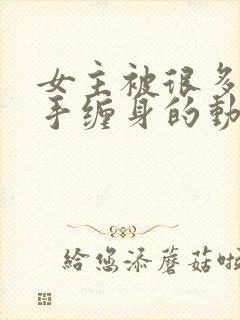 女主被很多
手缠身的動
給您添蘑菇啦